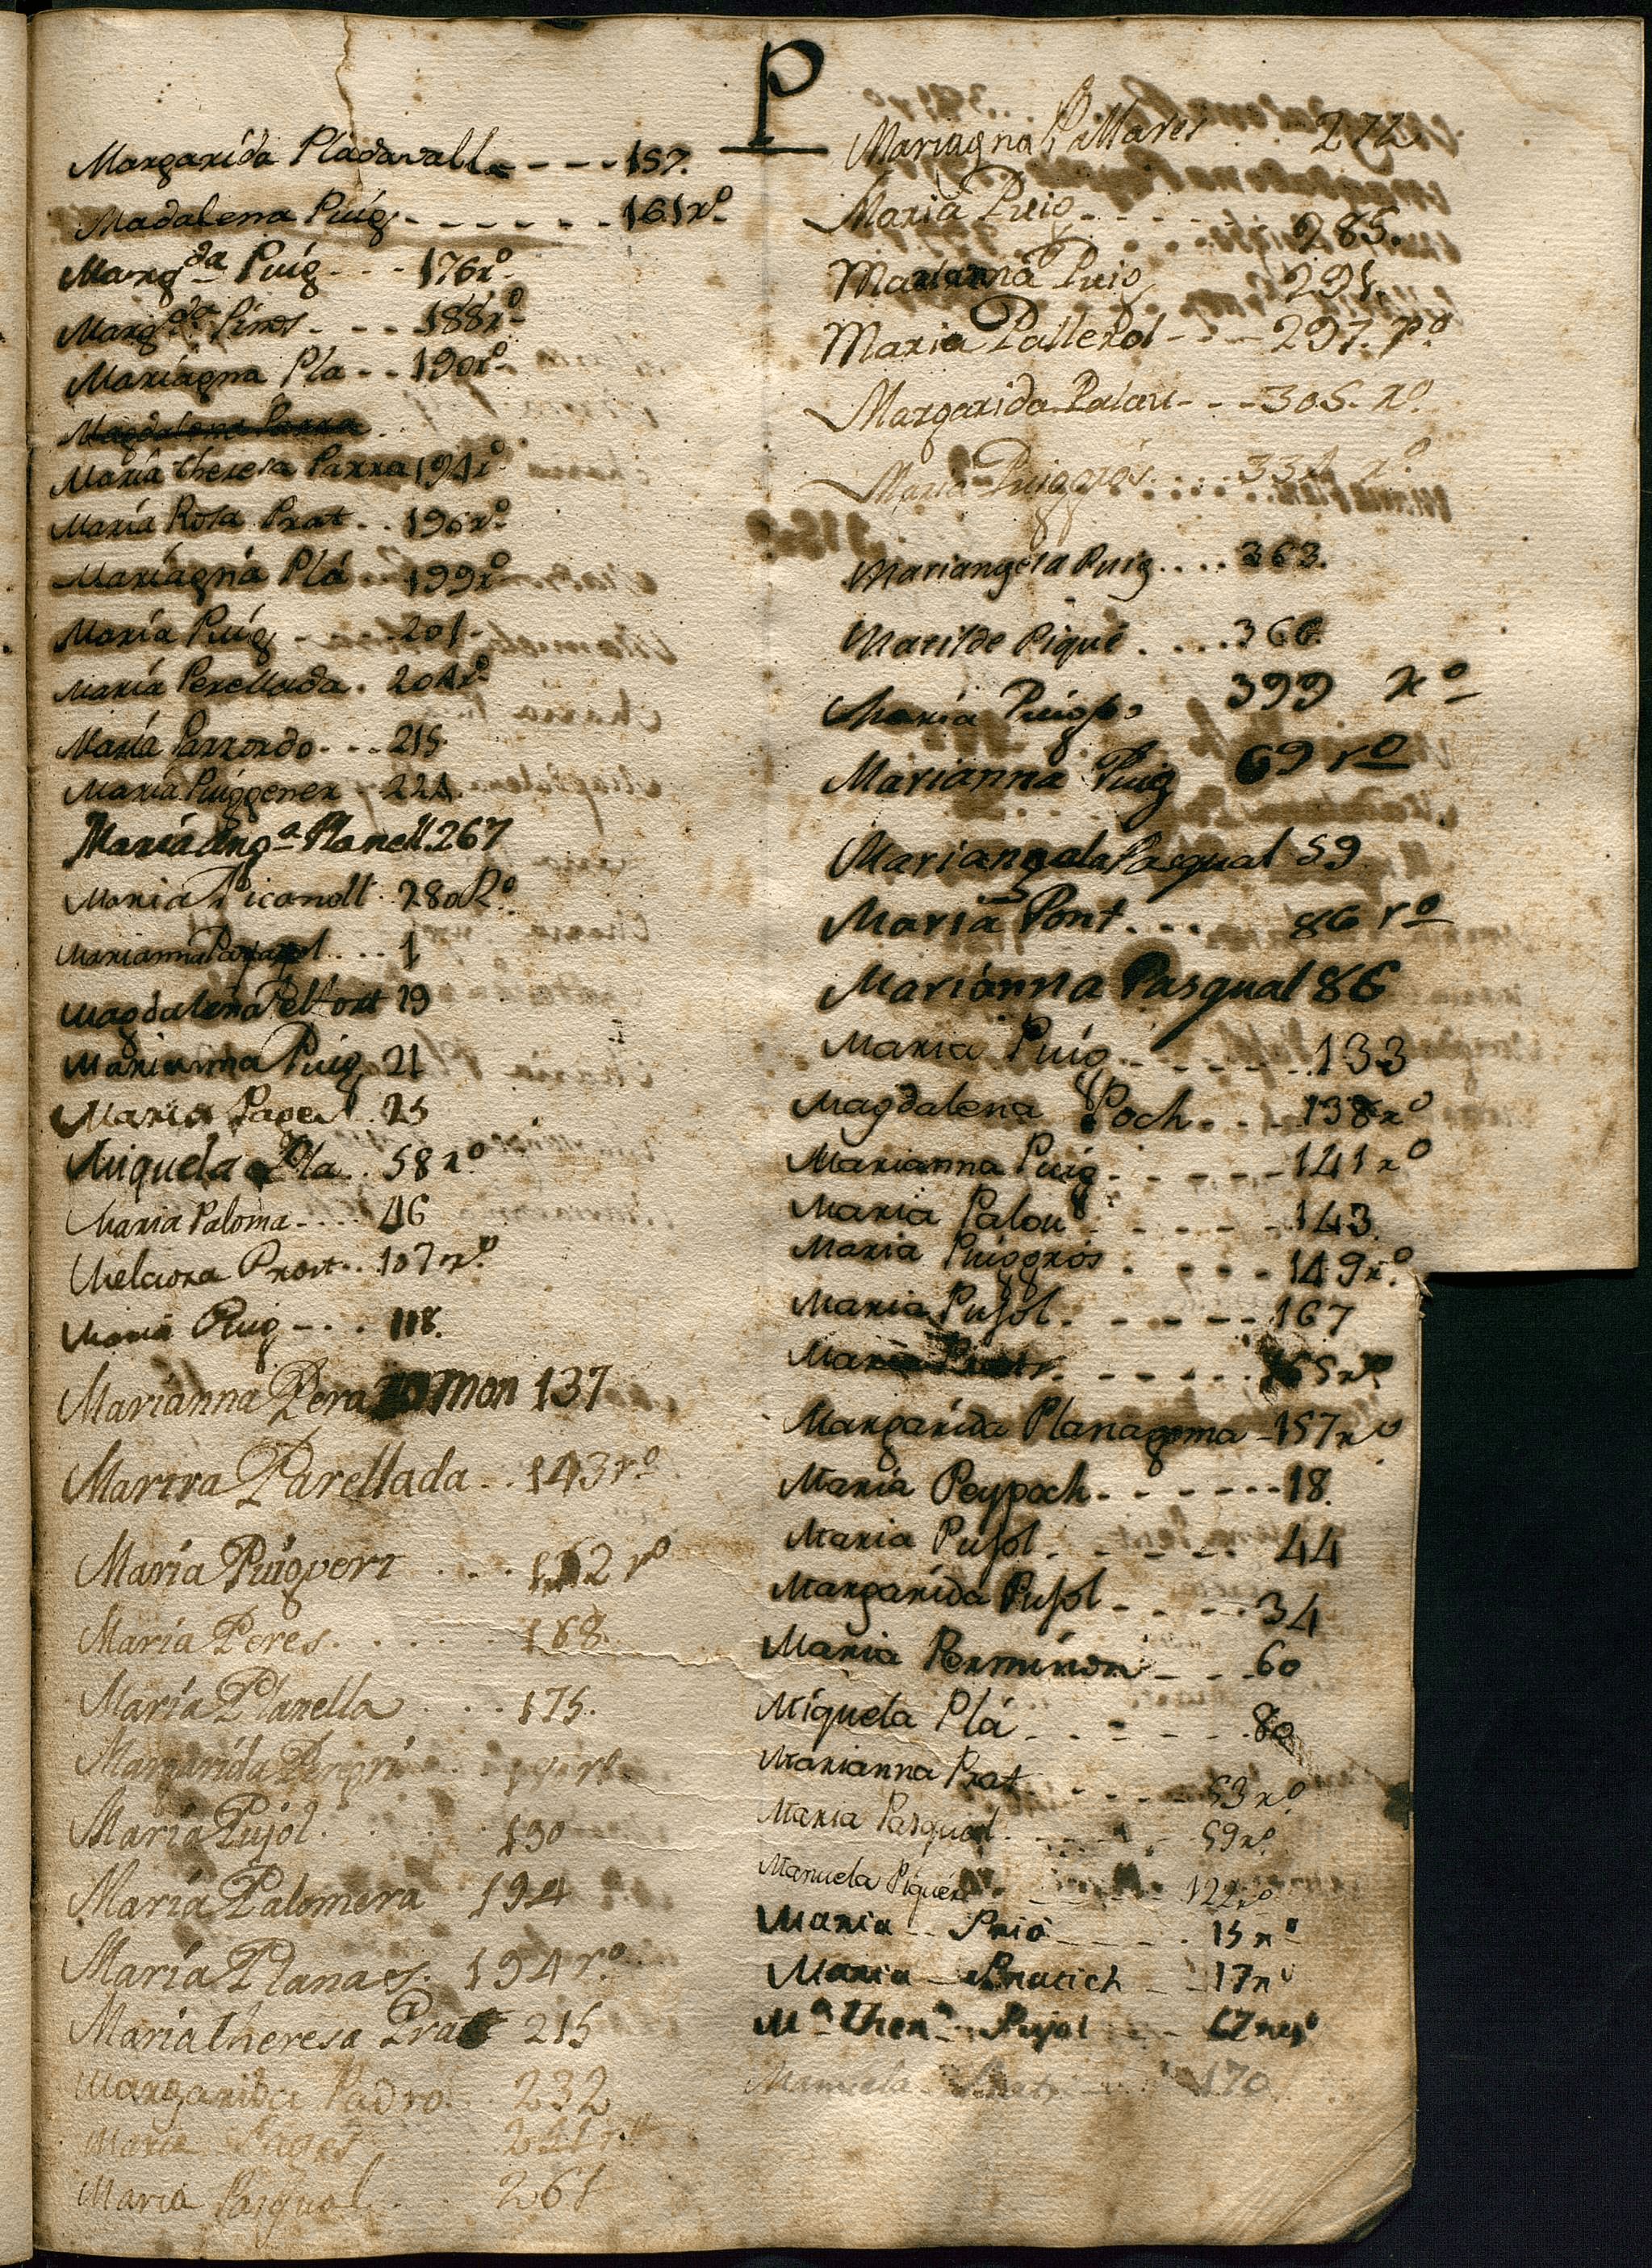 P
Margarída Pladavall - - - - 157.
Madalena Puíg - - - - - - 161 rº
Margda Puíg - - - 176 rº
Margda Pínos - - - 188 rº
Maríagna Pla - - 190 rº
Magdalena Parra
María theresa Parra 194 rº
María Rosa Prat . . 196 rº
Maríagna Plá 199 rº
María Puíg - - - 201
María Perellada . 204 rº
María Parrordo - - - 215
María Puíggener 224.
María Angª Planell 267
Maria Picandll 280 Rº
Marianna . . . 1
Magdalena Belfort 19
Marianna Puig 21
Maria Pages . 25
Miquela Pla . . 58 rº
Maria Paloma - . . . 46
Melciora Prort . . 107 rº
Maria Puig - . . 118.
Marianna Peramon 137
Parellada . . 143 rº
María Puigvert . . . 162 rº
María Peres . . . . . 168
María Planella . . . 175.
Margarída
María Pujol . . . . 190
María Palomera 194
María Planas . 194 rº
Maria theresa Prat 215
Margarida Padro . . 232
Maria Pages
Maria Pasqual . . 261
Mariagna Pallares . . 272
Maria Puig - - - - 285.
Marianna Puig 291.
Maria Pallerol - - - 297. rº
Margarida Palau - - - 305. rº
Maria Puiggrós . . . . 334 rº
Mariangela Puig . . . . 363.
Matilde Piqué . . . . 366
María 399 rº
Marianna Puig 69 rº
Mariangala Pasqual 59
Maria Pont . . . 86 rº
Marianna Pasqual 86
Maria Puíg - - - - - 133
Magdalena Poch . . - 138 rº
Marianna Puig - - - - - 141 rº
Maria Palou - - - - - 143.
Maria Puiggros . - - - 149 rº
Maria Pujol . - - - - - 167
Maria - - - - - 165 rº
Margarida Planagoma - 157 rº
Maria Peypoch - - - - - - 18.
Maria Pujol - - - - - 44
Margarida Pujol - - - - 34
Maria - - - 60
Míquela Plá - - - - - 80
Marianna Prat - - - - - 53 rº
Maria Pasqual . - - - - 59 rº
Manuela - - - - 122 rº
Maria - - Prió - - - . 15 rº
Maria - - 17 rº
Mª therª - Pujol - -
Manuela 170